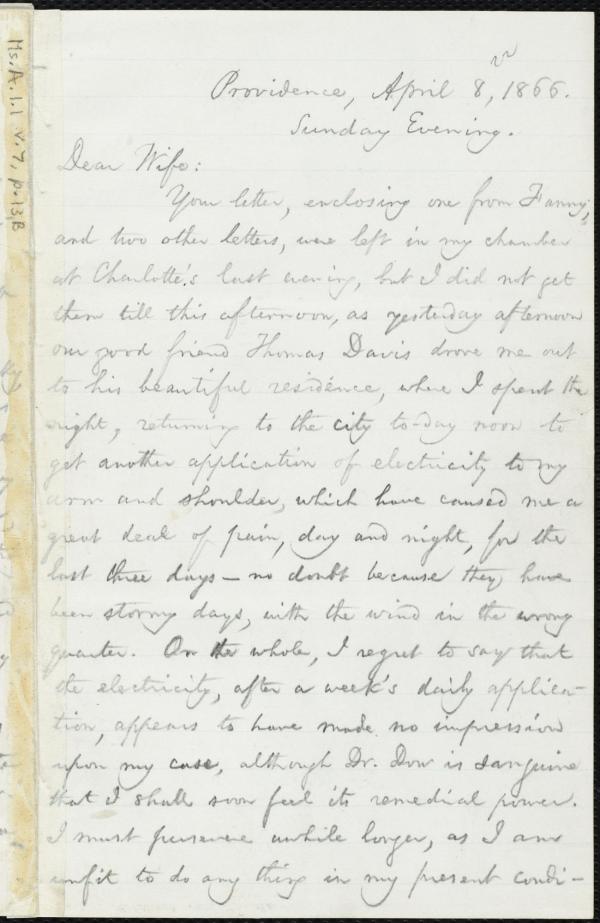 Ms. A. 1. 1 v. 7, p. 13B
Providence, April 8, 1866.
Sunday Evening.
Dear Wife:
Your letter, enclosing one from Fanny,
and two other letters, were left in my chamber
at Charlotte's last evening, but I did not get
them till this afternoon, as yesterday afternoon
our good friend Thomas Davis drove me out
to his beautiful residence, where I spent the
night, returning to the city to-day noon to
get another application of electricity to my
arm and shoulder, which have caused me a
great deal of pain, day and night, for the
last three days — no doubt because they have
been stormy days, with the wind in the wrong
quarter. On the whole, I regret to say that
the electricity, after a week's daily applica-
tion, appears to have made no impression
upon my case, although Dr. Dow is sanguine
that I shall soon feel its remedial power.
I must persevere awhile longer, as I am
unfit to do any thing in my present condi-